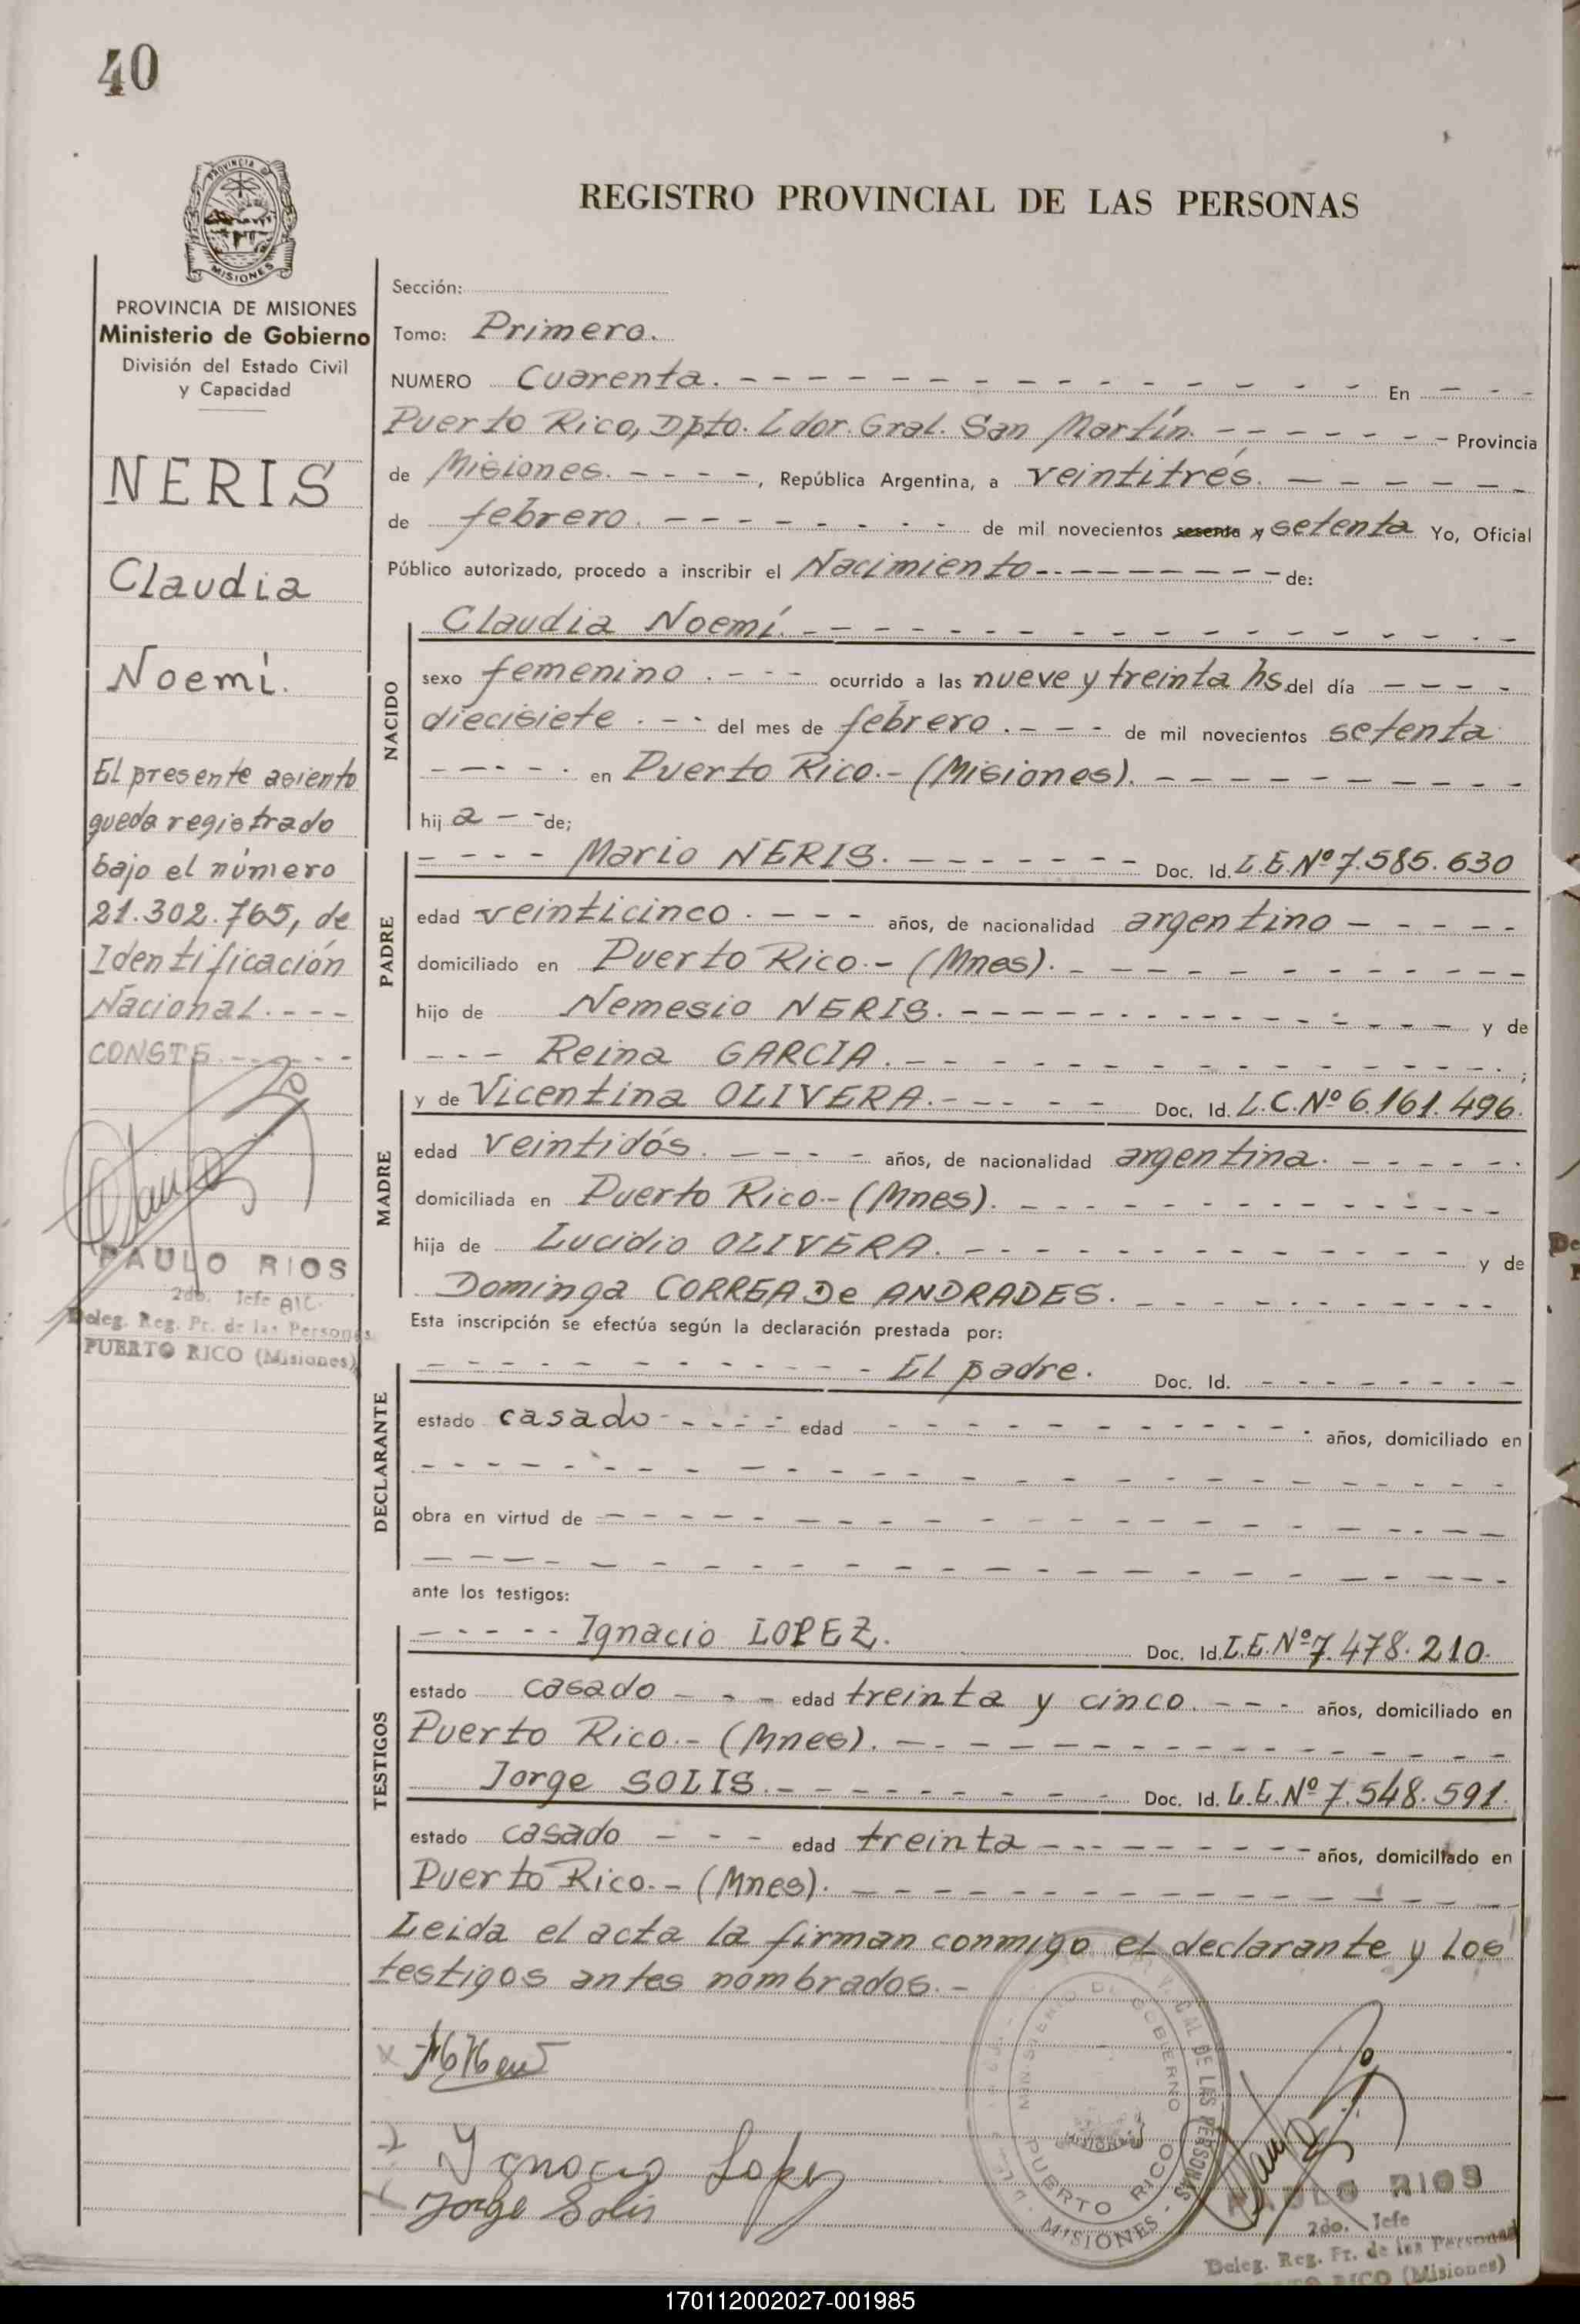 40
PROVINCIA
MISIONES
REGISTRO PROVINCIAL DE LAS PERSONAS
PROVINCIA DE MISIONES
Ministerio de Gobierno
División del Estado Civil
y Capacidad
NERIS
Claudia
Noemí.
El presente asiento
queda registrado
bajo el número
21.302.765, de
Identificación
Nacional. - - -
CONSTE. - - - - -
PAULO RIOS
2do. Jefe
Deleg. Reg. Pr. de las Personas
PUERTO RICO (Misiones)
Sección:
Tomo: Primero.
NUMERO Cuarenta. - - - - - - - - - - - - - - - - En - - -
Puerto Rico, Dpto. Ldor. Gral. San Martín. - - - - - - - Provincia
de Misiones. - - - -, República Argentina, a veintitrés. - - - - - -
de febrero. - - - - - - - - - de mil novecientos sesenta y setenta Yo, Oficial
Público autorizado, procedo a inscribir el Nacimiento - - - - - - - - - de:
NACIDO
Claudia Noemí. - - - - - - - - - - - - - - - - - -
sexo femenino. - - - ocurrido a las nueve y treinta hs. del día - - - -
diecisiete. - - del mes de febrero. - - - de mil novecientos setenta
- - - - - en Puerto Rico.- (Misiones). - - - - - - - - - -
hij a - - de;
PADRE
- - - - Mario NERIS. - - - - - - - Doc. Id. L.E.Nº 7.585.630
edad veinticinco. - - - años, de nacionalidad argentino - - - - -
domiciliado en Puerto Rico.- (Mnes). - - - - - - - - - - - -
hijo de Nemesio NERIS. - - - - - - - - - - - - - - - y de
- - - Reina GARCIA. - - - - - - - - - - - - - - - - ;
MADRE
y de Vicentina OLIVERA. - - - - - Doc. Id. L.C.Nº 6.161.496.
edad veintidós. - - - - años, de nacionalidad argentina. - - - - - -
domiciliada en Puerto Rico.- (Mnes). - - - - - - - - - - - - -
hija de Lucidio OLIVERA. - - - - - - - - - - - - - - y de
Dominga CORREA De ANDRADES. - - - - - - - - - - -
Esta inscripción se efectúa según la declaración prestada por:
DECLARANTE
- - - - - - - - - - - - El padre. Doc. Id. - - - - - - -
estado casado - - - - - edad - - - - - - - - - - - años, domiciliado en
- - - - - - - - - - - - - - - - - - - - - - - -
obra en virtud de - - - - - - - - - - - - - - - - - - - -
- - - - - - - - - - - - - - - - - - - - - - - -
ante los testigos:
TESTIGOS
- - - - - Ignacio LOPEZ. Doc. Id. L.E.Nº 7.478.210.
estado casado - - - edad treinta y cinco. - - - años, domiciliado en
Puerto Rico.- (Mnes). - - - - - - - - - - - - - - - -
Jorge SOLIS. - - - - - - - - - Doc. Id. L.E.Nº 7.548.591.
estado casado - - - edad treinta - - - - - - - - - años, domiciliado en
Puerto Rico.- (Mnes). - - - - - - - - - - - - - - - -
Leida el acta la firman conmigo el declarante y los
testigos antes nombrados.-
MINISTERIO DE GOBIERNO
DE LAS PERSONAS
PUERTO RICO
- MISIONES -
Ignacio Lopez
Jorge Solis
PAULO RIOS
2do. Jefe
Deleg. Reg. Pr. de las Personas
PUERTO RICO (Misiones)
170112002027-001985